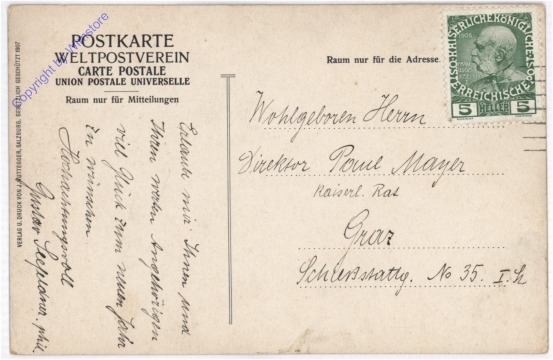 POSTKARTE
WELTPOSTVEREIN
CARTE POSTALE
UNION POSTALE UNIVERSELLE
Raum nur für Mitteilungen
Raum nur für die Adresse.
5 HELLER 5
Wohlgeboren Herrn
Direktor Paul Mayer
Kaiserl. Rat
Graz
Schießstattg. No 35. I. St
Erlaube mir Ihnen und
Ihren werten Angehörigen
viel Glück zum neuen Jahr
zu wünschen
Hochachtungsvoll
Gustav phil.
VERLAG U. DRUCK VON J. HUTTEGGER, SALZBURG, GESETZLICH GESCHÜTZT 1907
Copyright by